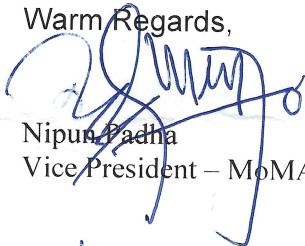 Warm Regards,
Nipun Padha
Vice President – MoMA